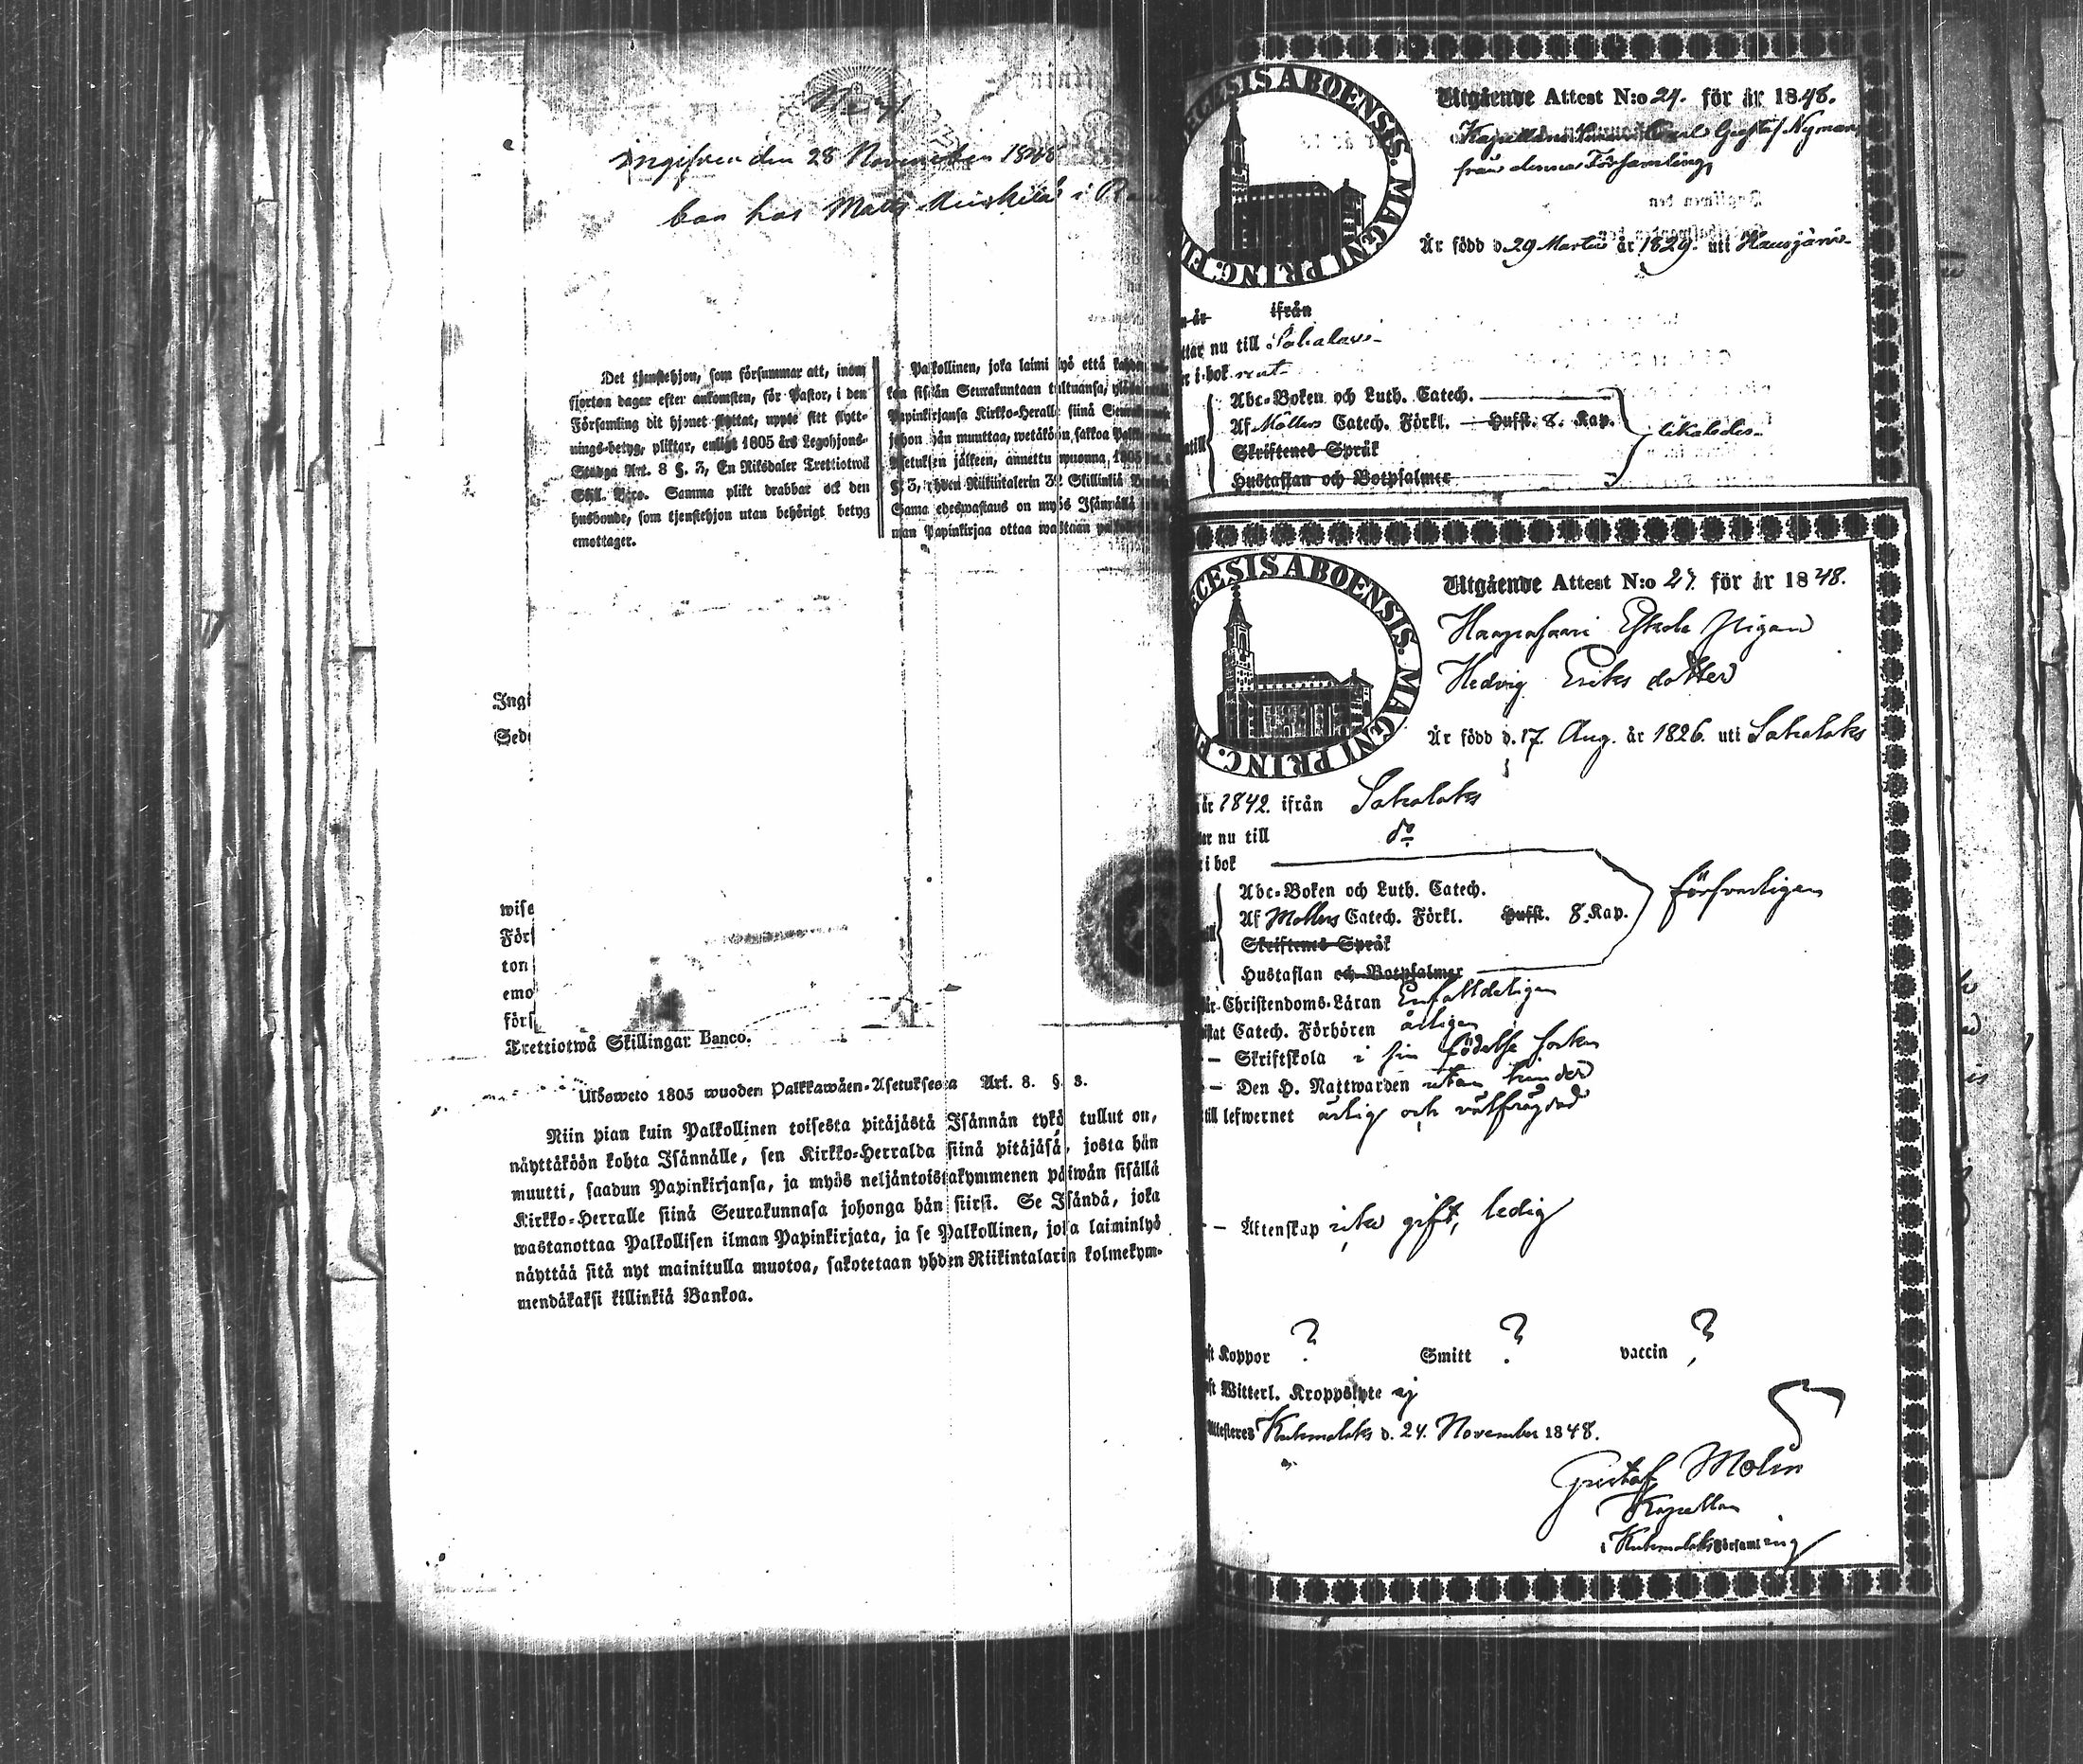 Ingifven den 28 November 1848
bor hos Matts
Det tjenstehjon, som försummar att, inom
fjorton dagar efter ankomsten, för Pastor, i den
Församling dit hjonet flyttat, uppte sitt flytt-
nings-betyg, pliktar, enligt 1805 års Legohjons-
Stadga Art. 8 §. 3, En Riksdaler Trettiotwå
Skil. B:co. Samma plikt drabbar ock den
husbonde, som tjenstehjon utan behörigt betyg
emottager.
Palkollinen, joka laimi lyö että
sisän Seurakuntaan tultuansa,
Papinkirjansa Kirkko-Heralle siinä
johon hän muuttaa, wetäköön sakkoa
Asetuksen jälkeen, annettu wuonna 1805
§. 3, yhden Riikintalerin 32 Skillinkiä
Sama edeswastaus on myös Isännällä
man Papinkirjaa ottaa wastaan
Ingi
Sede
wise
För
ton
emo
förs
Trettiotwå Skillingar Banco.
Ulosweto 1805 wuoden Palkkawäen-Asetuksesta Art. 8. §. 3.
Niin pian kuin Palkollinen toisesta pitäjästä Isännän tykö tullut on,
näyttäköön kohta Isännälle, sen Kirkko-Herralda siinä pitäjäsä, josta hän
muutti, saadun Papinkirjansa, ja myös neljäntoistakymmenen päiwän sisällä
Kirkko-Herralle siinä Seurakunnasa johonga hän siirsi. Se Isändä, joka
wastanottaa Palkollisen ilman Papinkirjata, ja se Palkollinen, joka laiminlyö
näyttää sitä nyt mainitulla muotoa, sakotetaan yhden Riikintalarin kolmekym-
mendäkaksi killinkiä Bankoa.
ECESIS ABOENSIS. MAGNI PRINC. FI
Utgående Attest N:o 24. för år 1848.
Carl Gustaf Nyman
från denna Församling,
Är född d. 29 Martii år 1829. uti Hausjärvi
n år ifrån
ttar nu till
r i bok rent
Abc-Boken och Luth. Catech.
Af Möllers Catech. Förkl. Hufst. 8. Kap.
likaledes
Skriftenes Språk
Hustaflan och Botpsalmer
ECESIS ABOENSIS. MAGNI PRINC. F
Utgående Attest N:o 27. för år 1848.
Haapasaari Eskola Pigan
Hedvig Eriks dotter
Är född d. 17. Aug. år 1826. uti Sahalaks
år 1842. ifrån Sahalaks
ar nu till do
i bok
Abc-Boken och Luth. Catech.
Af Möllers Catech. Förkl. Hufst. 8. Kap.
försvarligen
Skriftenes Språk
Hustaflan och Botpsalmer
är Christendoms-Läran Enfalldeligen
istat Catech. Förhören årligen
— Skriftskola i sin födelse socken
— Den H. Nattwarden utan hinder
till lefwernet ärlig och välfrägdad
— Äktenskap icke gift, ledig
ft Koppor ? Smitt ? vaccin ?
ft Witterl. Kroppslyte ej
Attesteres Kuhmalaks d. 24. November 1848.
Gustaf Molin
Kapellan
i Kuhmalaks Församling